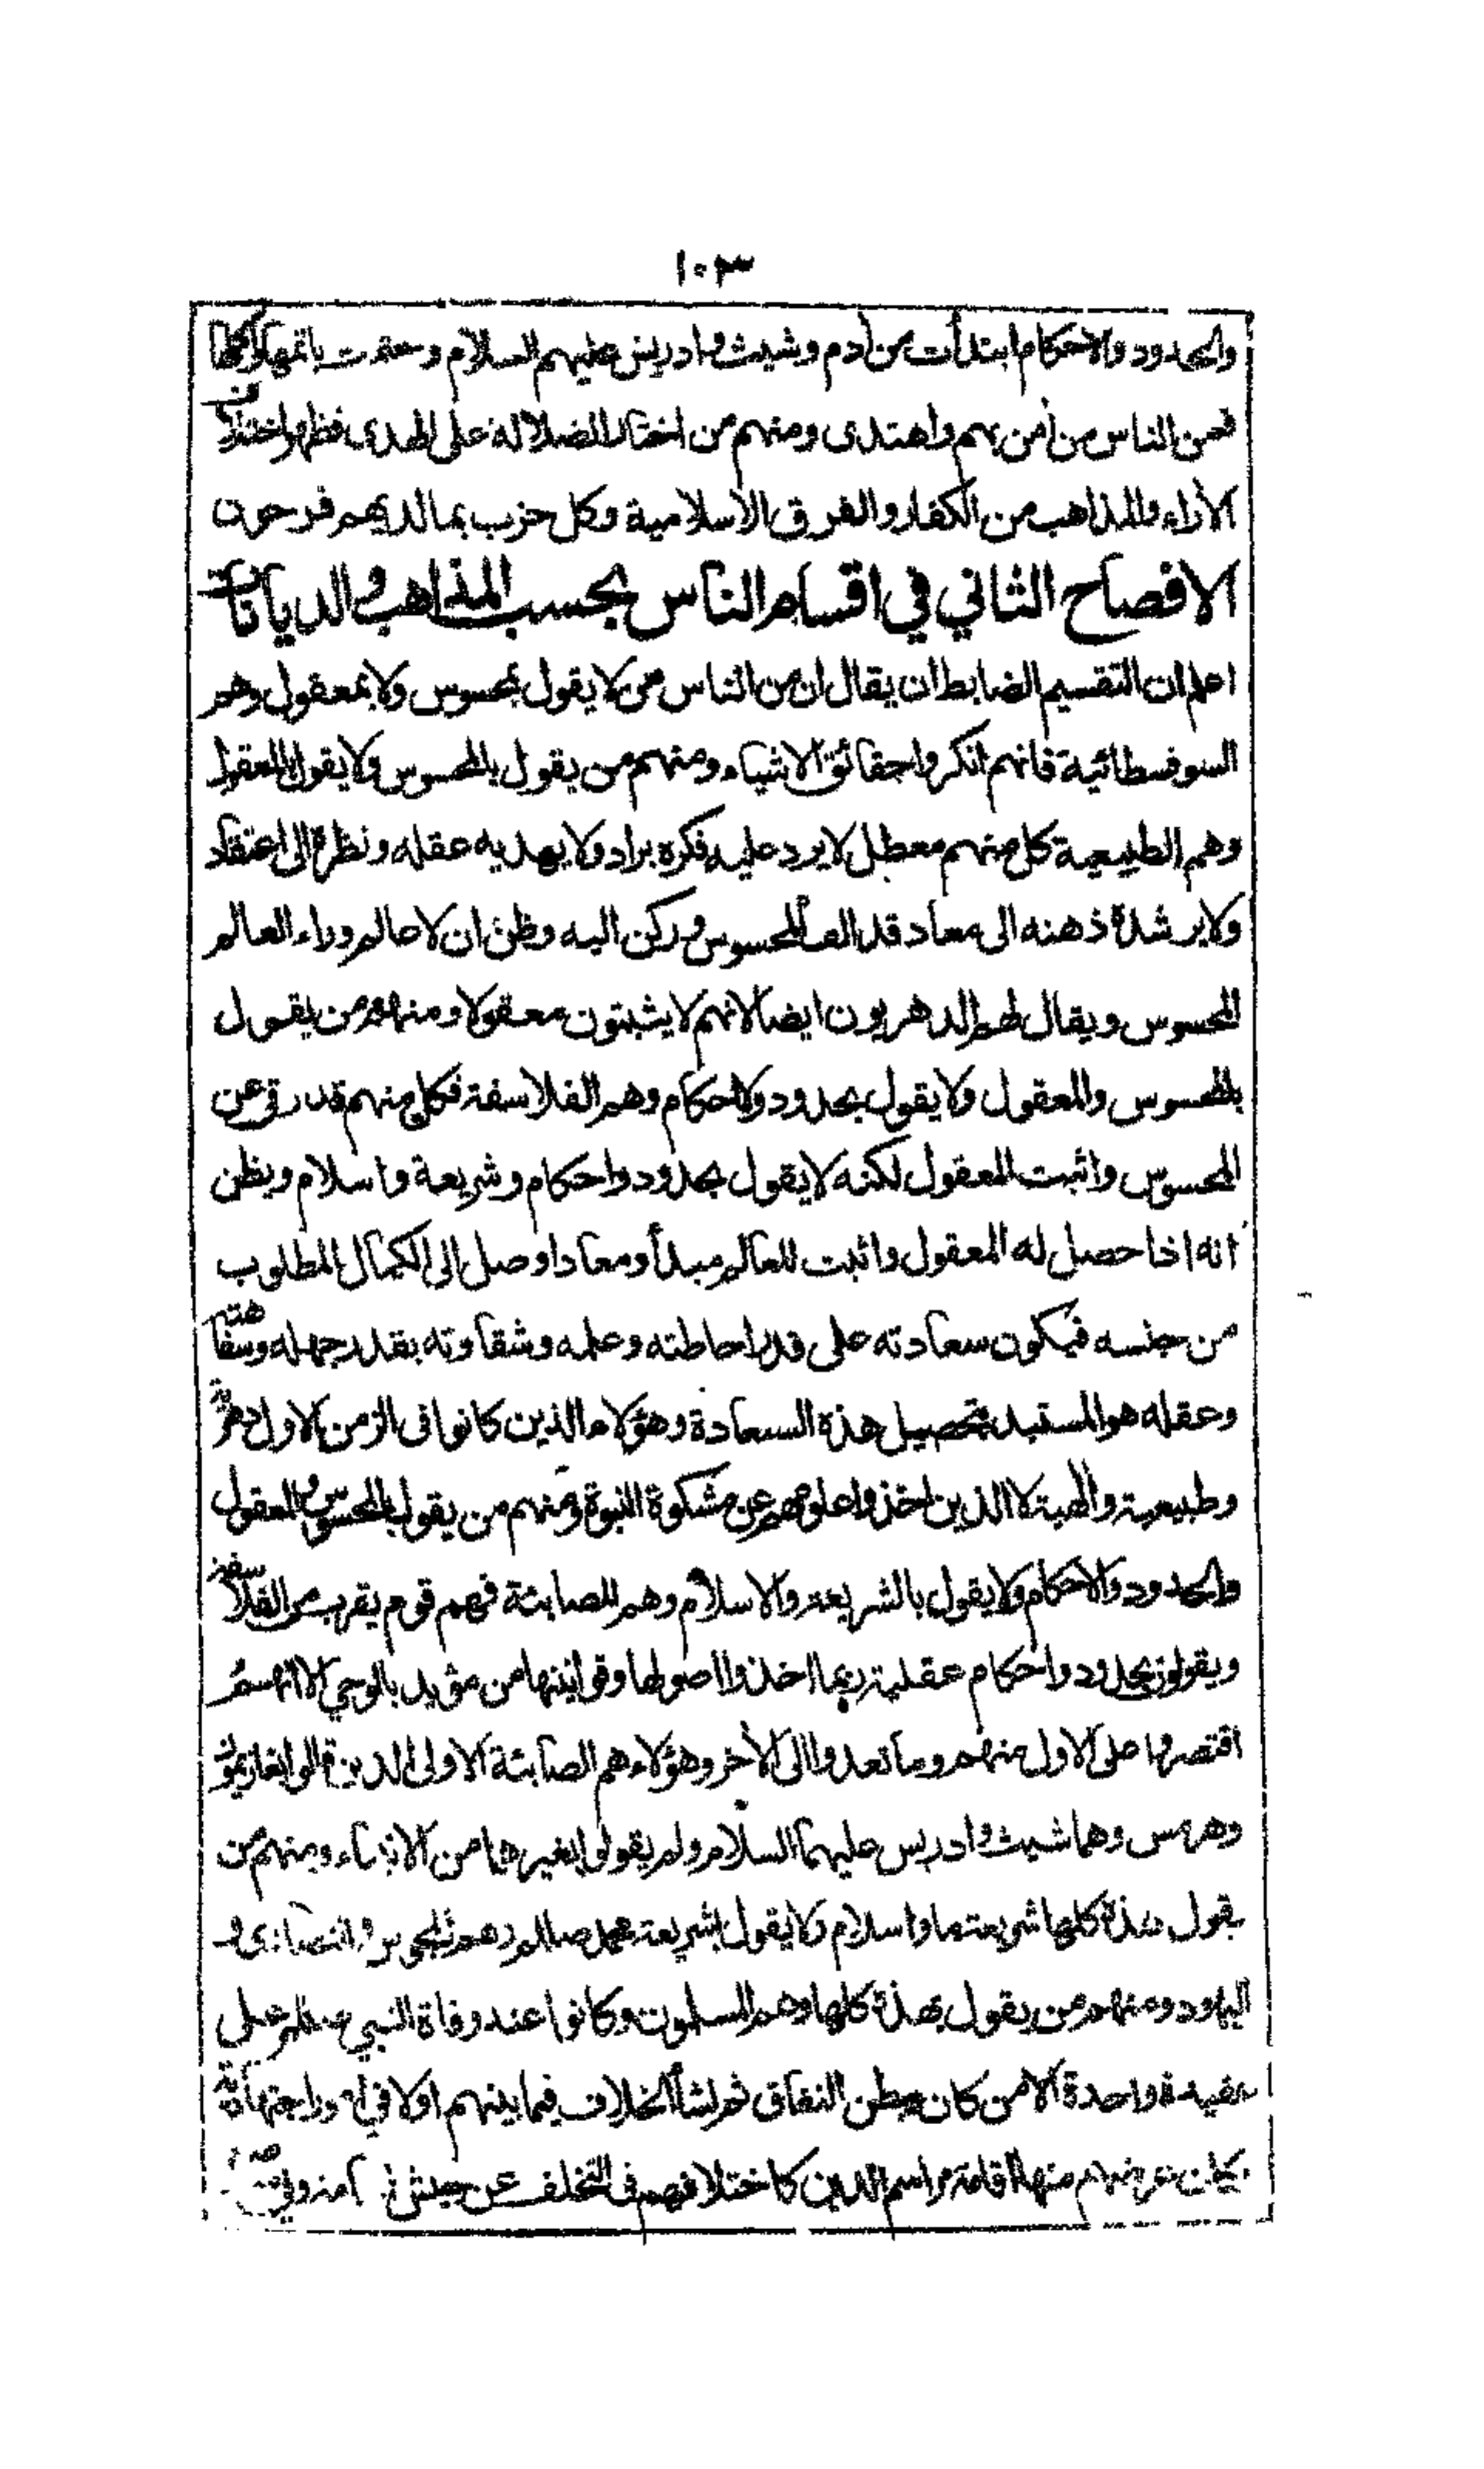 ١٠٣
والحدود والاحكام ابتدأت من آدم وشيث وادريس عليهم السلام وختمت باتمها واكملها
فمن الناس من آمن بهم واهتدى ومنهم من اختار الضلالة على الهدى فظهر اختلاف
الآراء والمذاهب من الكفار والفرق الاسلامية وكل حزب بما لديهم فرحون
الافصاح الثاني في اقسام الناس بحسب المذاهب والديانات
اعلم ان التقسيم الضابط ان يقال ان من الناس من لا يقول بمحسوس ولا بمعقول وهم
السوفسطائية فانهم انكروا حقائق الاشياء ومنهم من يقول بالمحسوس ولا يقول بالمعقول
وهم الطبيعية كل منهم معطل لا يرد عليه فكره براد ولا يهديه عقله ونظره الى اعتقاد
ولا يرشده ذهنه الى معاد قد الف المحسوس وركن اليه وظن ان لا عالم وراء العالم
المحسوس ويقال لهم الدهريون ايضا لانهم لا يثبتون معقولا ومنهم من يقول
بالمحسوس والمعقول ولا يقول بحدود ولا احكام وهم الفلاسفة فكل منهم قد رقى عن
المحسوس واثبت المعقول لكنه لا يقول بحدود واحكام وشريعة واسلام ويظن
انه اذا حصل له المعقول واثبت للعالم مبدأ ومعادا وصل الى الكمال المطلوب
من جنسه فيكون سعادته على قدر احاطته وعلمه وشقاوته بقدر جهله وسفاهته
وعقله هو المستبد بتحصيل هذه السعادة وهؤلاء الذين كانوا فى الزمن الاول دهرية
وطبيعية والهية لا الذين اخذوا علومهم عن مشكوة النبوة ومنهم من يقول بالمحسوس والمعقول
والحدود والاحكام ولا يقول بالشريعة والاسلام وهم الصابئة فهم قوم يقرب من الفلاسفة
ويقولون بحدود واحكام عقلية ربما اخذوا اصولها وقوانينها من مؤيد بالوحي الا انهم
اقتصروا على الاول منهم وما تعدوا الى الآخر وهؤلاء هم الصابئة الاولى الذين قالوا بغاذيمون
وهرمس وهما شيث وادريس عليهما السلام ولم يقولوا بغيرهما من الانبياء ومنهم من
يقول بهذه كلها شريعة ما واسلام ولا يقول بشريعة محمد صللم وهم المجوس والنصارى و
اليهود ومنهم من يقول بهذه كلها وهم المسلمون وكانوا عند وفاة النبي صللم على
عقيدة واحدة الا من كان يبطن النفاق ثم نشأ الخلاف فيما بينهم اولا في امور اجتهادية
منها اقامة مراسم الدين كاختلافهم فى التخلف عن جيش